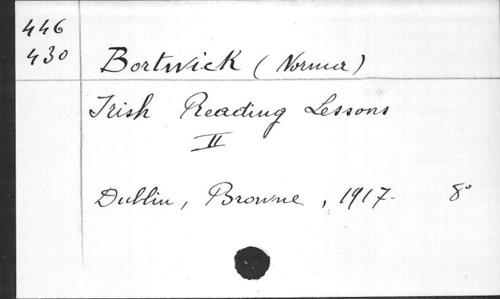 446
430
Bortwick (Norma)
Irish Reading Lessons
II
Dublin, Browne, 1917. 8°